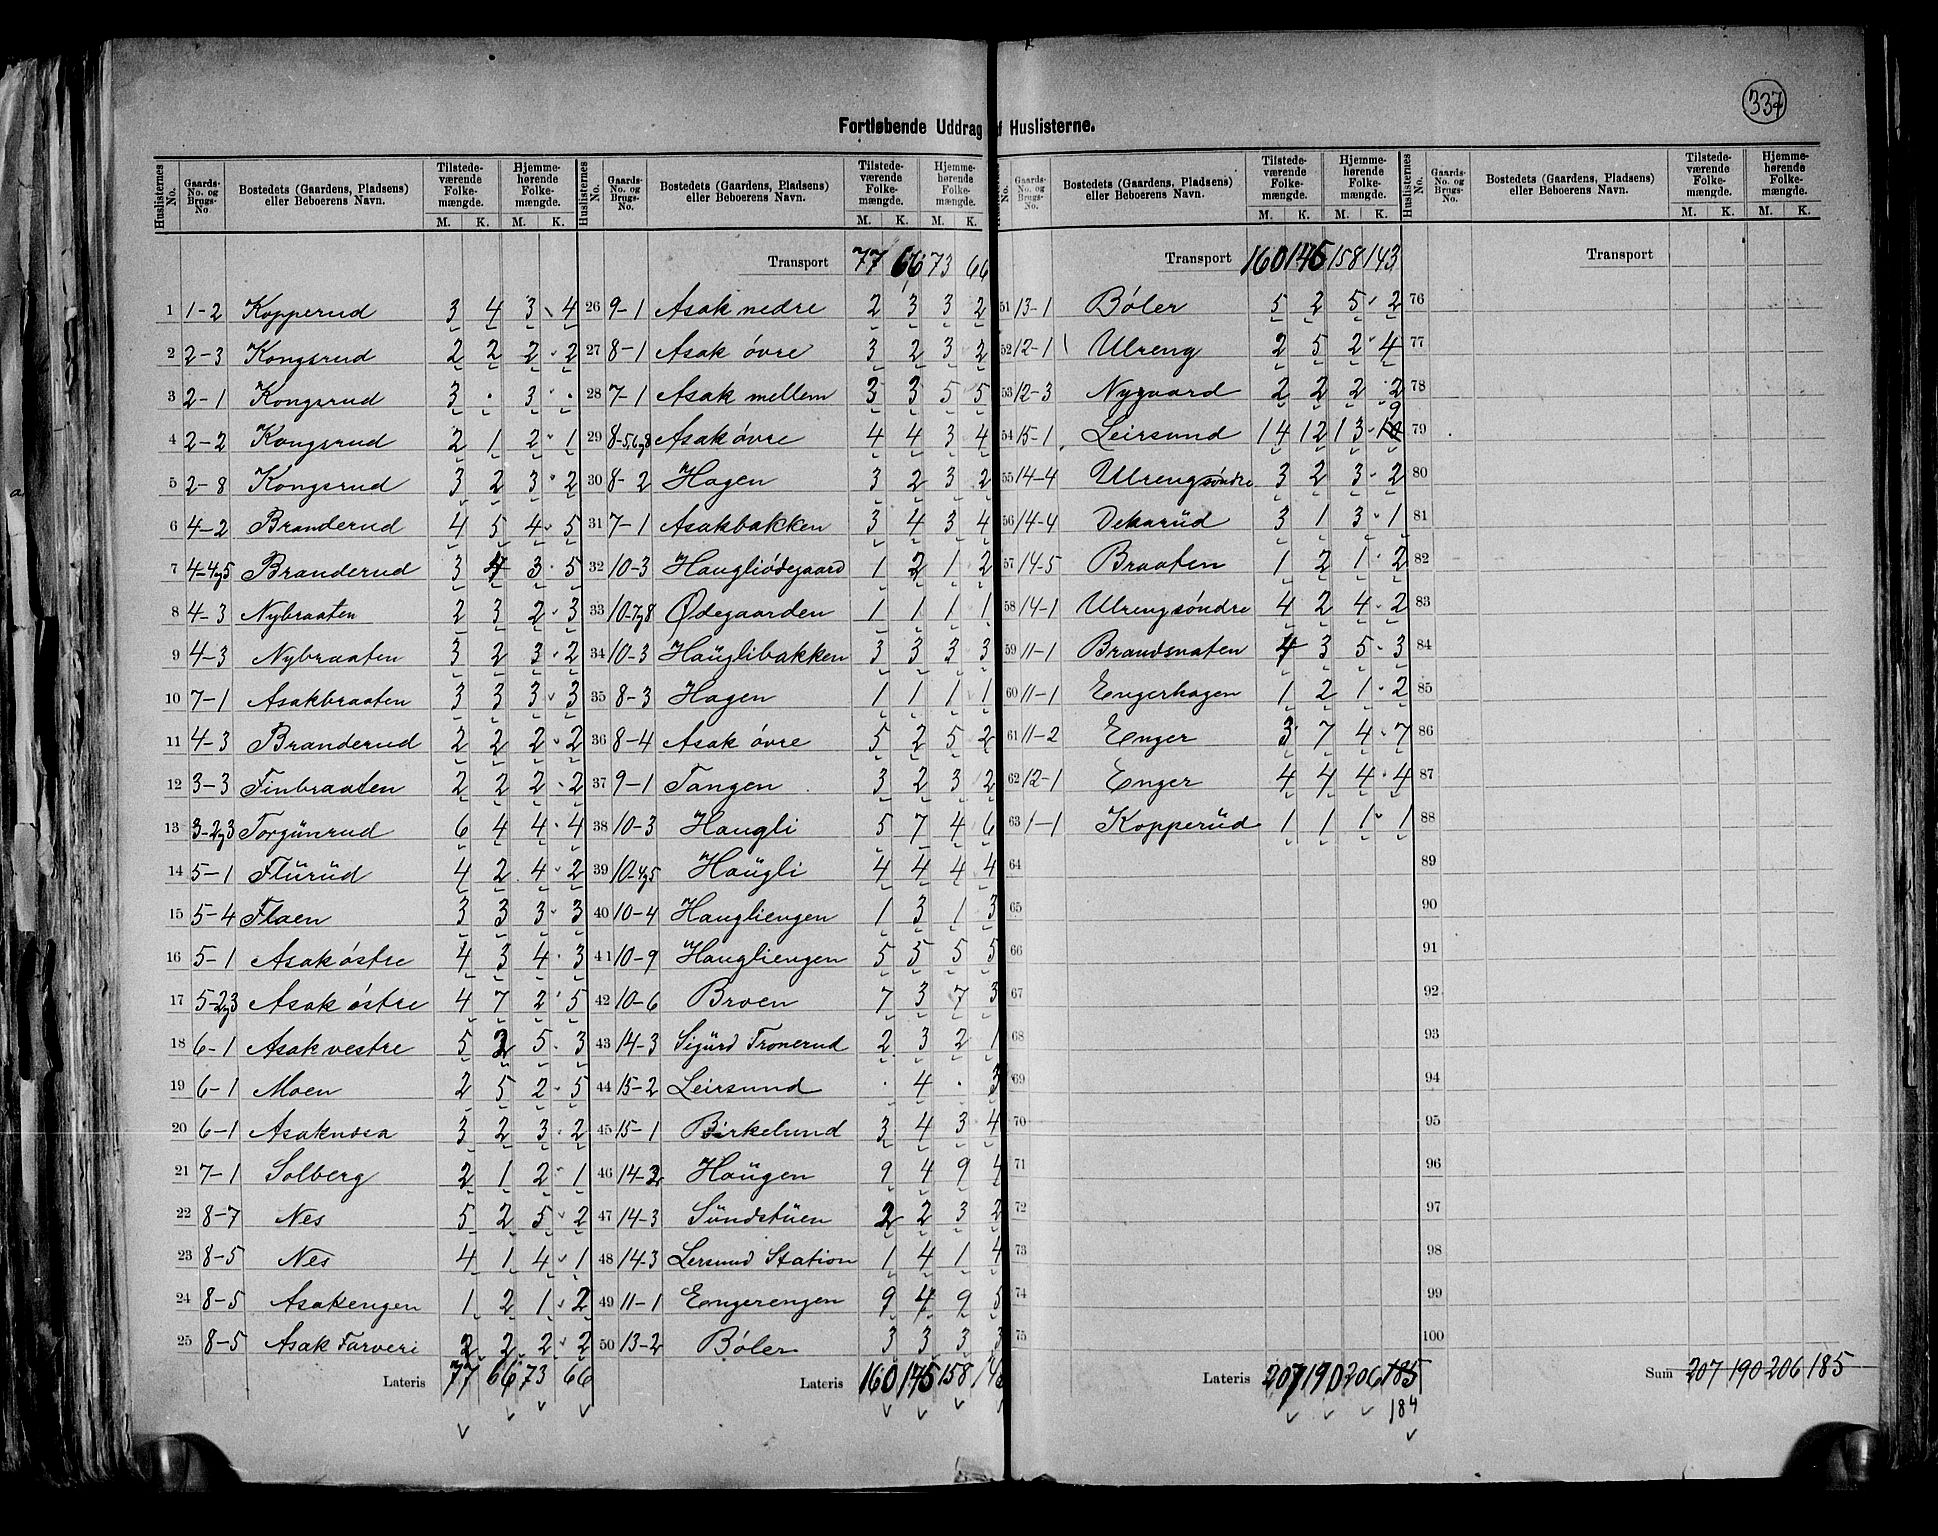 337
Fortløbende Uddrag af Huslisterne.
Huslisternes No. Gaards-No. og Brugs-No. Bostedets (Gaardens, Pladsens) eller Beboerens Navn. Tilstedeværende Folkemængde. M. K. Hjemmehørende Folkemængde. M. K.
1 1-2 Kopperud 3 4 3 4
2 2-3 Kongsrud 2 2 2 2
3 2-1 Kongsrud 3 . 3 .
4 2-2 Kongsrud 2 1 2 1
5 2-8 Kongsrud 3 2 3 2
6 4-2 Branderud 4 5 4 5
7 4-4og5 Branderud 3 4 3 5
8 4-3 Nybraaten 2 3 2 3
9 4-3 Nybraaten 3 2 3 2
10 7-1 Asakbraaten 3 3 3 3
11 4-3 Branderud 2 2 2 2
12 3-3 Finbraaten 2 2 2 2
13 3-2og3 Torgünrud 6 4 4 4
14 5-1 Flürüd 4 2 4 2
15 5-4 Flaen 3 3 3 3
16 5-1 Asak østre 4 3 4 3
17 5-2og3 Asak østre 4 7 2 5
18 6-1 Asak vestre 5 2 5 3
19 6-1 Moen 2 5 2 5
20 6-1 Asaknosa 3 2 3 2
21 7-1 Solberg 2 1 2 1
22 8-7 Nes 5 2 5 2
23 8-5 Nes 4 1 4 1
24 8-5 Asakengen 1 2 1 2
25 8-5 Asak Farveri 2 2 2 2
Lateris 77 66 73 66
Huslisternes No. Gaards-No. og Brugs-No. Bostedets (Gaardens, Pladsens) eller Beboerens Navn. Tilstedeværende Folkemængde. M. K. Hjemmehørende Folkemængde. M. K.
Transport 77 66 73 66
26 9-1 Asak nedre 2 3 3 2
27 8-1 Asak øvre 3 2 3 2
28 7-1 Asak mellem 3 3 5 5
29 8-5,6og8 Asak øvre 4 4 3 4
30 8-2 Hagen 3 2 3 2
31 7-1 Asakbakken 3 4 3 4
32 10-3 Haugliødegaard 1 2 1 2
33 10-7og8 Ødegaarden 1 1 1 1
34 10-3 Haüglibakken 3 3 3 3
35 8-3 Hagen 1 1 1 1
36 8-4 Asak øvre 5 2 5 2
37 9-1 Tangen 3 2 3 2
38 10-3 Haugli 5 7 4 6
39 10-4og5 Haügli 4 4 4 4
40 10-4 Haugliengen 1 3 1 3
41 10-9 Haugliengen 5 5 5 5
42 10-6 Broen 7 3 7 3
43 14-3 Sigürd Tronerud 2 3 2 1
44 15-2 Leirsund . 4 . 3
45 15-1 Birkelund 3 4 3 4
46 14-2 Haügen 9 4 9 4
47 14-3 Sündstüen 2 2 3 2
48 14-3 Lersund Station 1 4 1 4
49 11-1 Engerengen 9 4 9 5
50 13-2 Bøler 3 3 3 3
Lateris 160 145 158
No. Gaards-No. og Brugs-No. Bostedets (Gaardens, Pladsens) eller Beboerens Navn. Tilstedeværende Folkemængde. M. K. Hjemmehørende Folkemængde. M. K.
Transport 160 145 158 143
51 13-1 Bøler 5 2 5 2
52 12-1 Ulreng 2 5 2 4
53 12-3 Nygaard 2 2 2 2
54 15-1 Leirsund 14 12 13 10 9
55 14-4 Ulrengsøndre 3 2 3 2
56 14-4 Dekarüd 3 1 3 1
57 14-5 Braaten 1 2 1 2
58 14-1 Ulrengsøndre 4 2 4 2
59 11-1 Brandsnaten 4 3 5 3
60 11-1 Engerhagen 1 2 1 2
61 11-2 Enger 3 7 4 7
62 12-1 Enger 4 4 4 4
63 1-1 Kopperüd 1 1 1 1
64
65
66
67
68
69
70
71
72
73
74
75
Lateris 207 190 206 185
184
Huslisternes No. Gaards-No. og Brugs-No. Bostedets (Gaardens, Pladsens) eller Beboerens Navn. Tilstedeværende Folkemængde. M. K. Hjemmehørende Folkemængde. M. K.
Transport
76
77
78
79
80
81
82
83
84
85
86
87
88
89
90
91
92
93
94
95
96
97
98
99
100
Sum 207 190 206 185